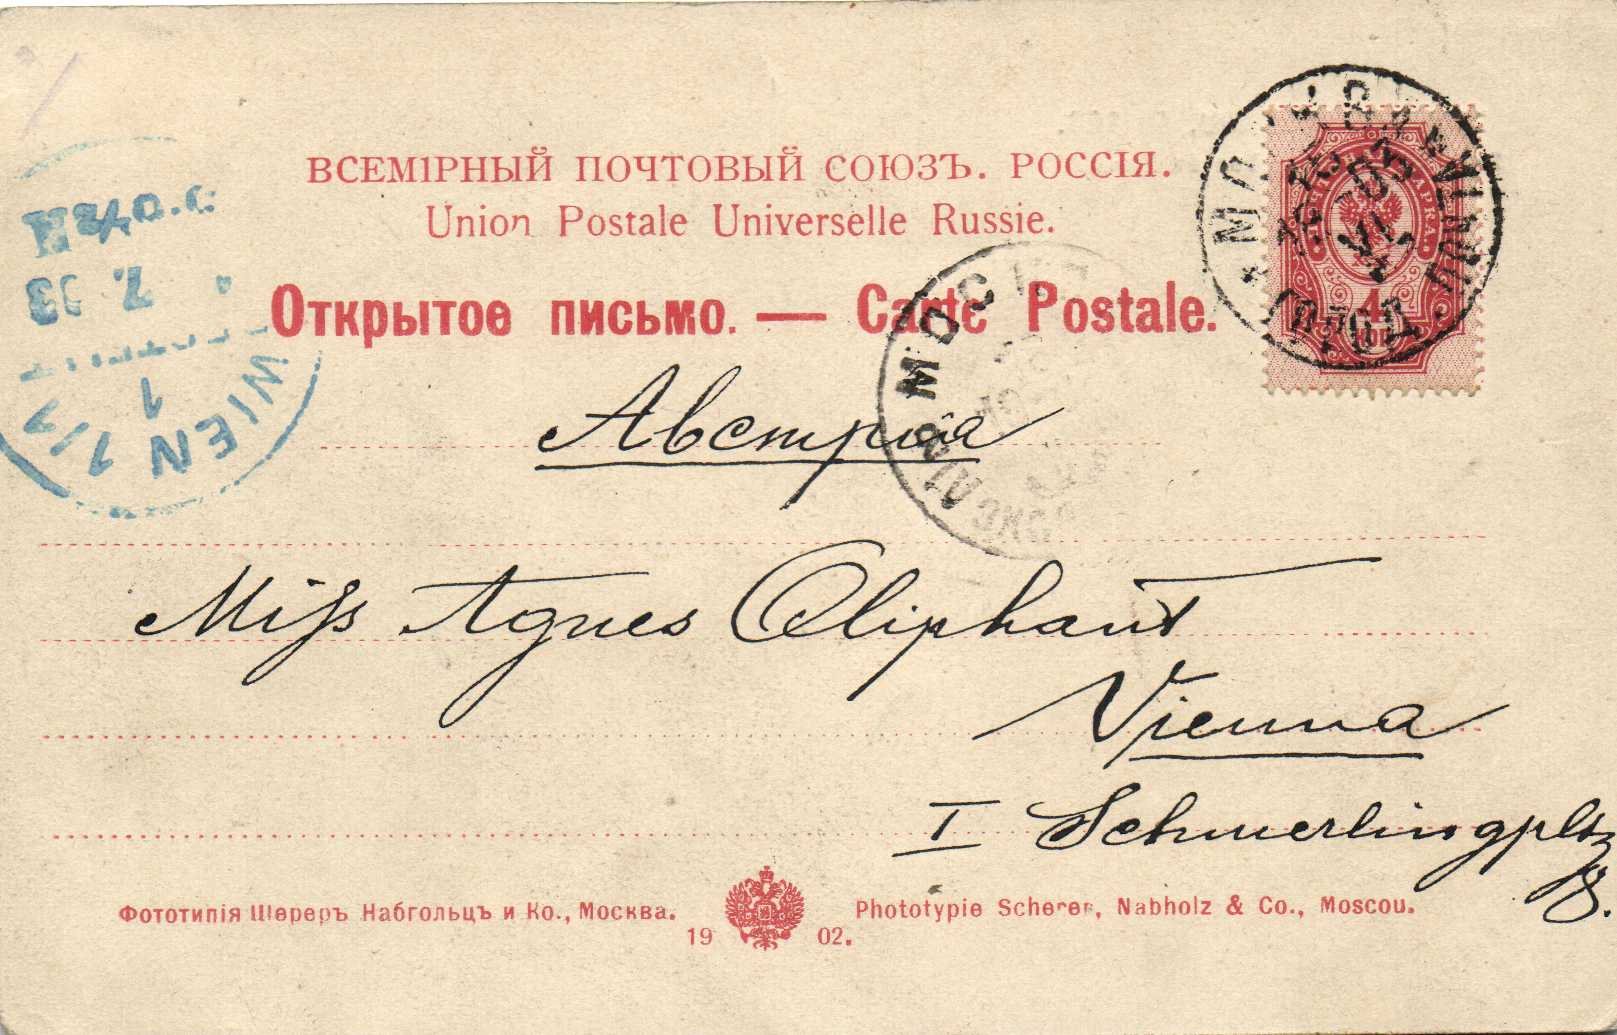 ВСЕМІРНЫЙ ПОЧТОВЫЙ СОЮЗЪ. РОССІЯ.
Union Postale Universelle Russie.
Открытое письмо. — Carte Postale.
Австрія
Miss Agnes Oliphant
Vienna
I Schmerlingpltz
8.
Фототипія Шереръ Набгольцъ и Ко., Москва.
Phototypie Scherer, Nabholz & Co., Moscou.
19 02.
МОСКВА
ГОРОД.
4
WIEN 1/1
1
MOSC